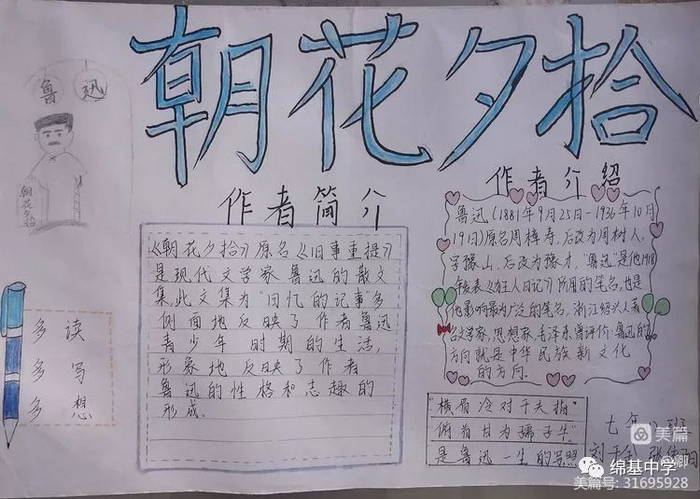 朝花夕拾
鲁迅
朝花夕拾
作者简介
《朝花夕拾》原名《旧事重提》
是现代文学家鲁迅的散文
集,此文集为“回忆的记事”多
侧面地反映了作者鲁迅
青少年时期的生活,
形象地反映了作者
鲁迅的性格和志趣的
形成.
作者介绍
鲁迅(1881年9月25日-1936年10月
19日)原名周樟寿,后改为周树人,
字豫山,后改为豫才,“鲁迅”是他1918
年发表《狂人日记》所用的笔名,也是
他影响最为广泛的笔名,浙江绍兴人著
名文学家,思想家,毛泽东曾评价:鲁迅的
方向就是中华民族新文化
的方向.
多读
多写
多想
“横眉冷对千夫指
俯首甘为孺子牛”
是鲁迅一生的写照
七年
美篇
绵基中学
美篇号: 31695928